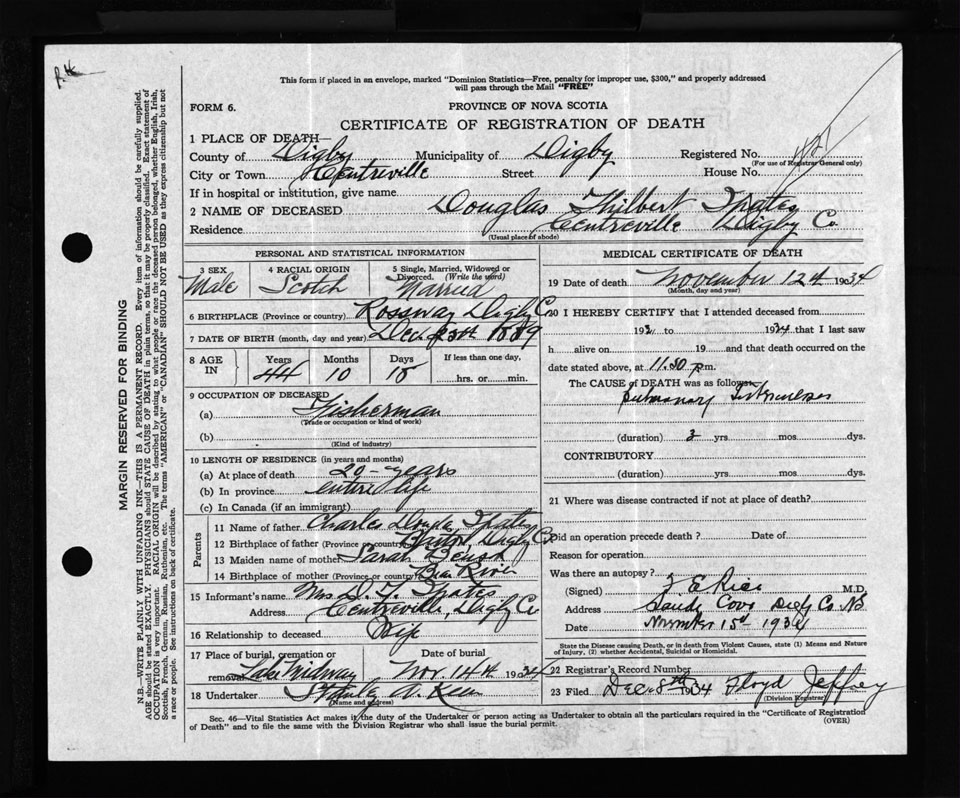 This form if placed in an envelope, marked "Dominion Statistics—Free, penalty for improper use, $300," and properly addressed
will pass through the Mail "FREE"
FORM 6.
PROVINCE OF NOVA SCOTIA
CERTIFICATE OF REGISTRATION OF DEATH
1 PLACE OF DEATH—
County of Digby Municipality of Digby Registered No.
(For use of Registrar General only)
City or Town Centreville Street House No.
If in hospital or institution, give name
2 NAME OF DECEASED Douglas Thilbert
Residence Centreville Digby Co
(Usual place of abode)
PERSONAL AND STATISTICAL INFORMATION
3 SEX 4 RACIAL ORIGIN 5 Single, Married, Widowed or Divorced. (Write the word)
Male Scotch Married
6 BIRTHPLACE (Province or country) Rossway Digby Co
7 DATE OF BIRTH (month, day and year) Dec 1889
8 AGE IN Years Months Days If less than one day,
44 10 18 hrs. or min.
9 OCCUPATION OF DECEASED
(a) Fisherman
(Trade or occupation or kind of work)
(b)
(Kind of industry)
10 LENGTH OF RESIDENCE (in years and months)
(a) At place of death 20 - years
(b) In province entire life
(c) In Canada (if an immigrant)
Parents
11 Name of father Charles
12 Birthplace of father (Province or country) Digby Co
13 Maiden name of mother Sarah
14 Birthplace of mother (Province or country) Bear River
15 Informant's name Mrs D. T.
Address Centreville, Digby Co
16 Relationship to deceased Wife
17 Place of burial, cremation or removal Date of burial
Lake Midway Nov. 14th 1934
18 Undertaker Stanley A.
(Name and address)
MEDICAL CERTIFICATE OF DEATH
19 Date of death November 12th 1934
(Month, day and year)
20 I HEREBY CERTIFY that I attended deceased from
193 to 1934 that I last saw
h alive on 19 and that death occurred on the
date stated above, at 11.30 p.m.
The CAUSE of DEATH was as follows:
Pulmonary Tuberculosis
(duration) 3 yrs. mos. dys.
CONTRIBUTORY
(duration) yrs. mos. dys.
21 Where was disease contracted if not at place of death?
Did an operation precede death? Date of
Reason for operation
Was there an autopsy?
(Signed) F E Rice M.D.
Address Sandy Cove Digby Co. N.S
Date November 15th 1934
State the Disease causing Death, or in death from Violent Causes, state (1) Means and Nature
of Injury, (2) whether Accidental, Suicidal or Homicidal.
22 Registrar's Record Number
23 Filed Dec 8th 1934 Floyd Jeffrey
(Division Registrar)
Sec. 46—Vital Statistics Act makes it the duty of the Undertaker or person acting as Undertaker to obtain all the particulars required in the "Certificate of Registration
of Death" and to file the same with the Division Registrar who shall issue the burial permit. (OVER)
MARGIN RESERVED FOR BINDING
N.B.—WRITE PLAINLY WITH UNFADING INK—THIS IS A PERMANENT RECORD. Every item of information should be carefully supplied.
AGE should be stated EXACTLY. PHYSICIANS should STATE CAUSE OF DEATH in plain terms, so that it may be properly classified. Exact statement of
OCCUPATION is very important. RACIAL ORIGIN will be described by stating to what people or race the deceased person belonged, whether English, Irish,
Scottish, French, German, Russian, Ruthenian, etc. The terms "AMERICAN" or "CANADIAN" SHOULD NOT BE USED as they express citizenship but not
a race or people. See instructions on back of certificate.